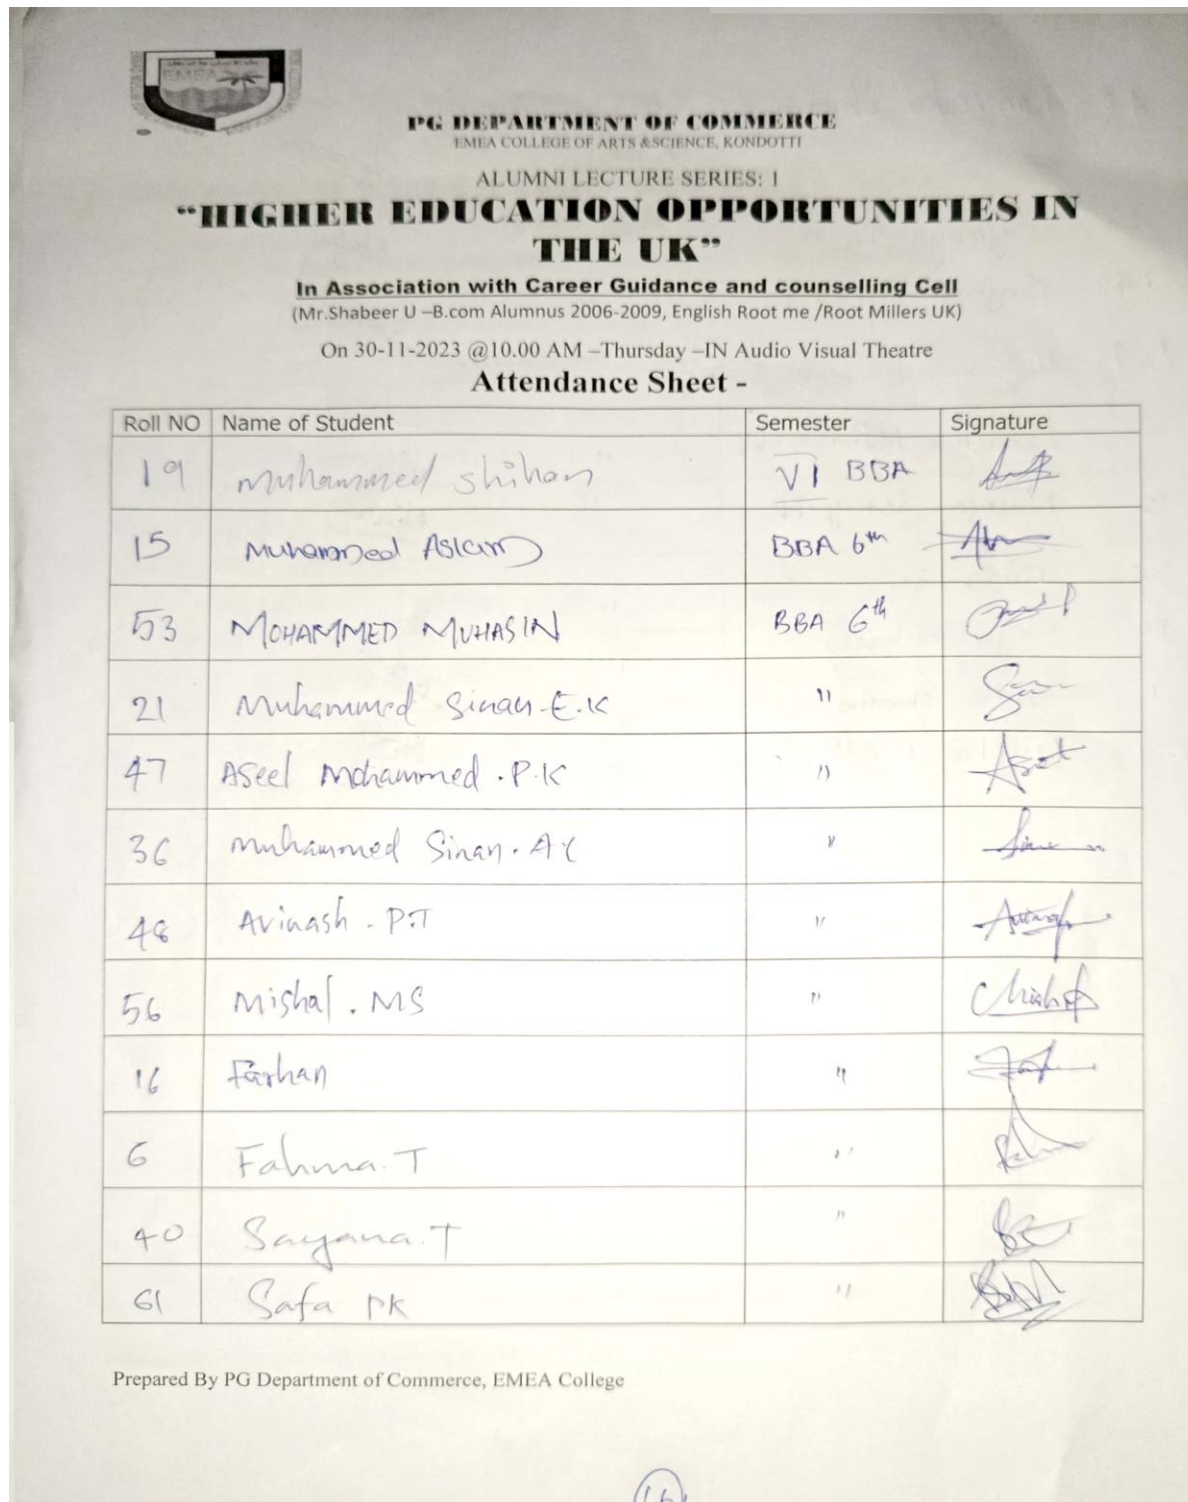 EMEA
PG DEPARTMENT OF COMMERCE
EMEA COLLEGE OF ARTS &SCIENCE, KONDOTTI
ALUMNI LECTURE SERIES: 1
“HIGHER EDUCATION OPPORTUNITIES IN
THE UK”
In Association with Career Guidance and counselling Cell
(Mr.Shabeer U –B.com Alumnus 2006-2009, English Root me /Root Millers UK)
On 30-11-2023 @10.00 AM –Thursday –IN Audio Visual Theatre
Attendance Sheet -
Roll NO Name of Student Semester Signature
19 Muhammed Shihan VI BBA
15 Muhammed Aslam BBA 6th
53 MOHAMMED MUHASIN BBA 6th
21 Muhammed Sinan E.K "
47 Aseel Mohammed .P.K "
36 Muhammed Sinan. "
48 Avinash . P.T "
56 Mishal . MS "
16 Farhan "
6 Fahma.T "
40 Sayana.T "
61 Safa PK "
Prepared By PG Department of Commerce, EMEA College